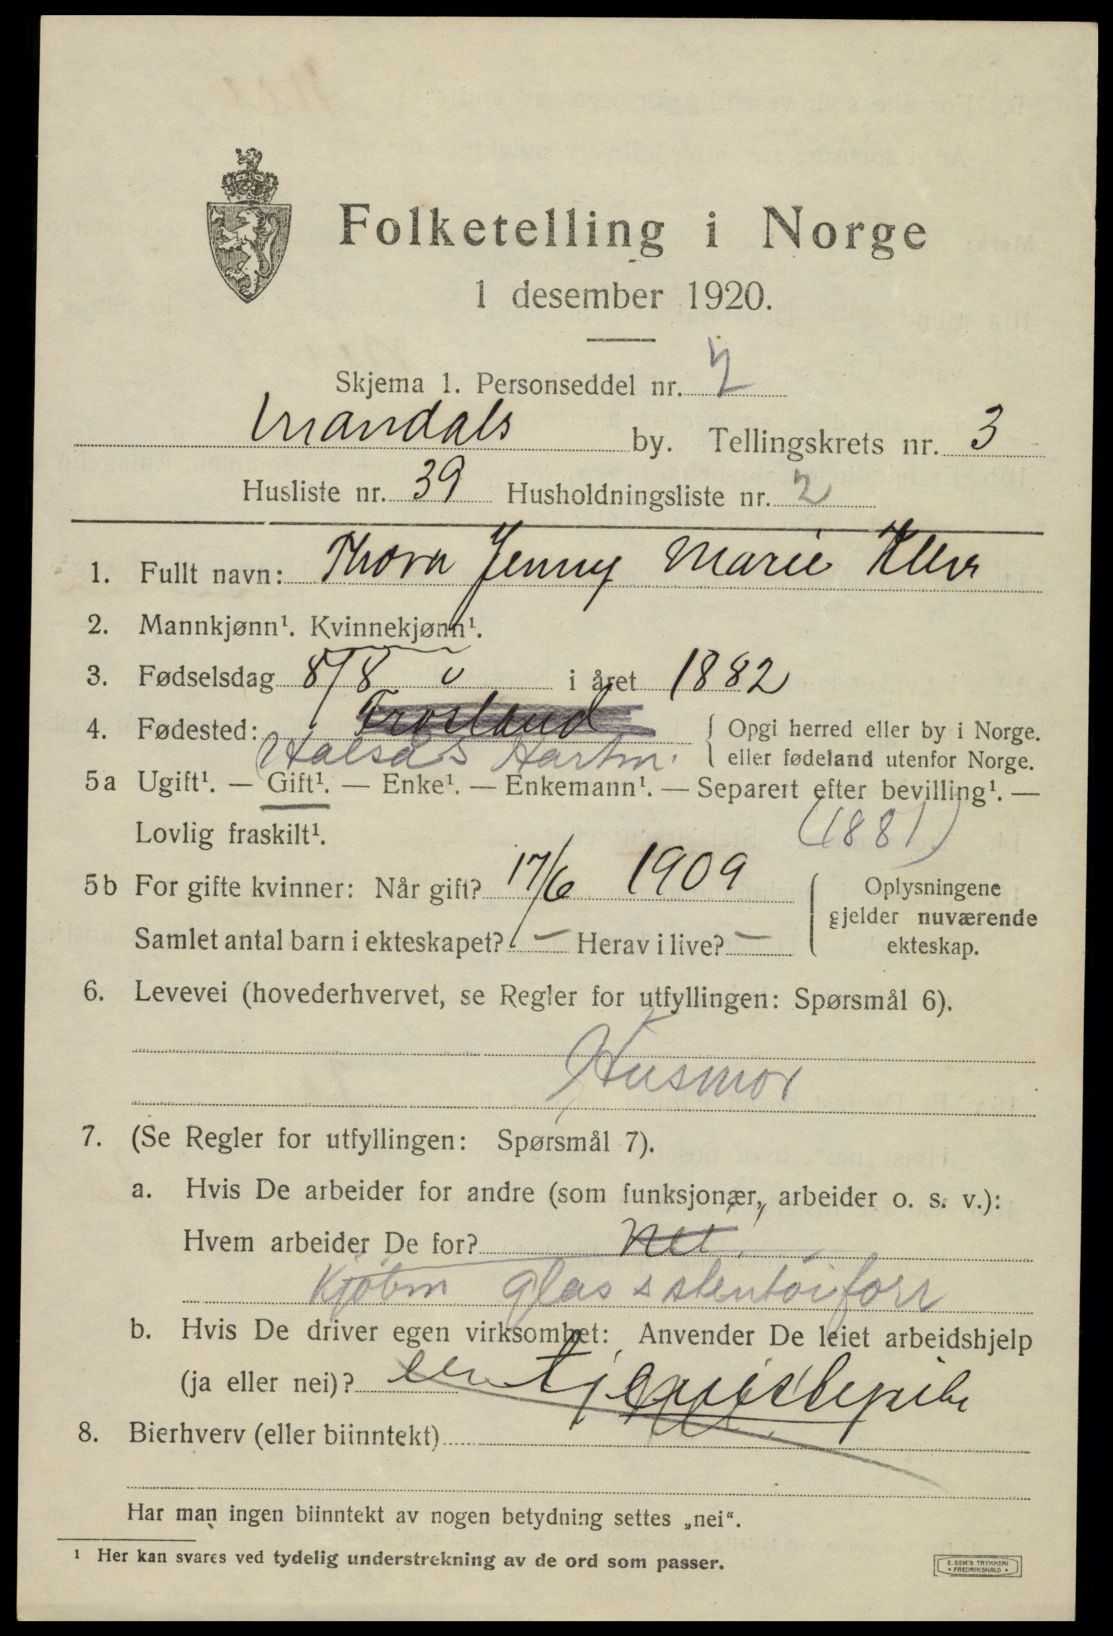 Folketelling i Norge
1 desember 1920.
Skjema 1. Personseddel nr. 2
Mandals by. Tellingskrets nr. 3
Husliste nr. 39 Husholdningsliste nr. 2
1. Fullt navn: Thora Jenny Marie
2. Mannkjønn¹. Kvinnekjønn¹.
3. Fødselsdag 8/8 i året 1882
4. Fødested: Frøsland { Opgi herred eller by i Norge.
Halsås Hartm. eller fødeland utenfor Norge.
5a Ugift¹. — Gift¹. — Enke¹. — Enkemann¹. — Separert efter bevilling¹. —
Lovlig fraskilt¹. (1881)
5b For gifte kvinner: Når gift? 17/6 1909 { Oplysningene
gjelder nuværende
Samlet antal barn i ekteskapet? — Herav i live? — ekteskap.
6. Levevei (hovederhvervet, se Regler for utfyllingen: Spørsmål 6).
Husmor
7. (Se Regler for utfyllingen: Spørsmål 7).
a. Hvis De arbeider for andre (som funksjonær, arbeider o. s. v.):
Hvem arbeider De for? nei
Kjøbm glass & stentøiforr
b. Hvis De driver egen virksomhet: Anvender De leiet arbeidshjelp
(ja eller nei)? en tjenistepike
8. Bierhverv (eller biinntekt)
Har man ingen biinntekt av nogen betydning settes „nei“.
¹ Her kan svares ved tydelig understrekning av de ord som passer.
E. SEM'S TRYKKERI
• FREDRIKSHALD •